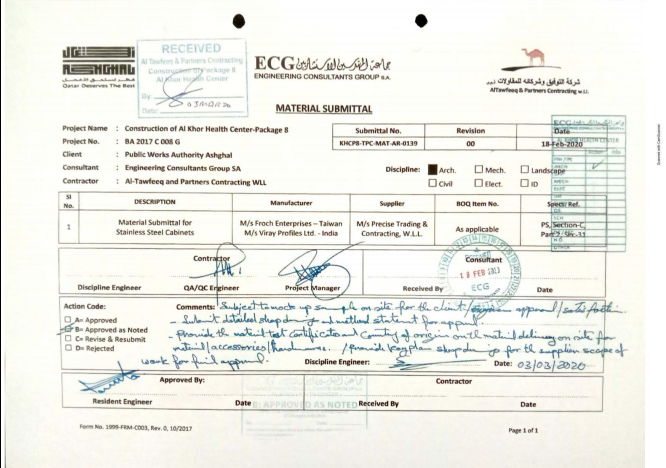 ASHGHAL
Qatar Deserves The Best
RECEIVED
Al Tawfeeq & Partners Contracting
Construction Package 8
Al Khor Health Center
By:
Date: 03 MAR 20
ECG
ENGINEERING CONSULTANTS GROUP S.A.
شركة التوفيق وشركائه للمقاولات ذ.م.م
AlTawfeeq & Partners Contracting W.L.L.
MATERIAL SUBMITTAL
Project Name : Construction of Al Khor Health Center-Package 8
Project No. : BA 2017 C 008 G
Client : Public Works Authority Ashghal
Consultant : Engineering Consultants Group SA
Contractor : Al-Tawfeeq and Partners Contracting WLL
Submittal No. Revision Date
KHCP8-TPC-MAT-AR-0139 00 18-Feb-2020
Discipline: Arch. Mech. Landscape
Civil Elect. ID
SI No. DESCRIPTION Manufacturer Supplier BOQ Item No. Specs/ Ref.
1 Material Submittal for Stainless Steel Cabinets M/s Froch Enterprises – Taiwan M/s Viray Profiles Ltd. - India M/s Precise Trading & Contracting, W.L.L. As applicable PS, Section-C,
Contractor Consultant
18 FEB
ECG
Discipline Engineer QA/QC Engineer Project Manager Received By Date
Action Code:
A= Approved
B= Approved as Noted
C= Revise & Resubmit
D= Rejected
Comments: Subject to mock up sample on site for the client/ approval/satisfaction.
- Submit detailed shop drawing and method statement for approval.
- Provide the material test certificate and Country of origin on the material delivery on site for
material/accessories/hardware /provide key plan shop for the supplier scope of
work for final approval.
Discipline Engineer: Date: 03/03/2020
Approved By: Contractor
Resident Engineer Date Received By Date
B: APPROVED AS NOTED
Form No. 1999-FRM-C003, Rev. 0, 10/2017
Page 1 of 1
Scanned with CamScanner